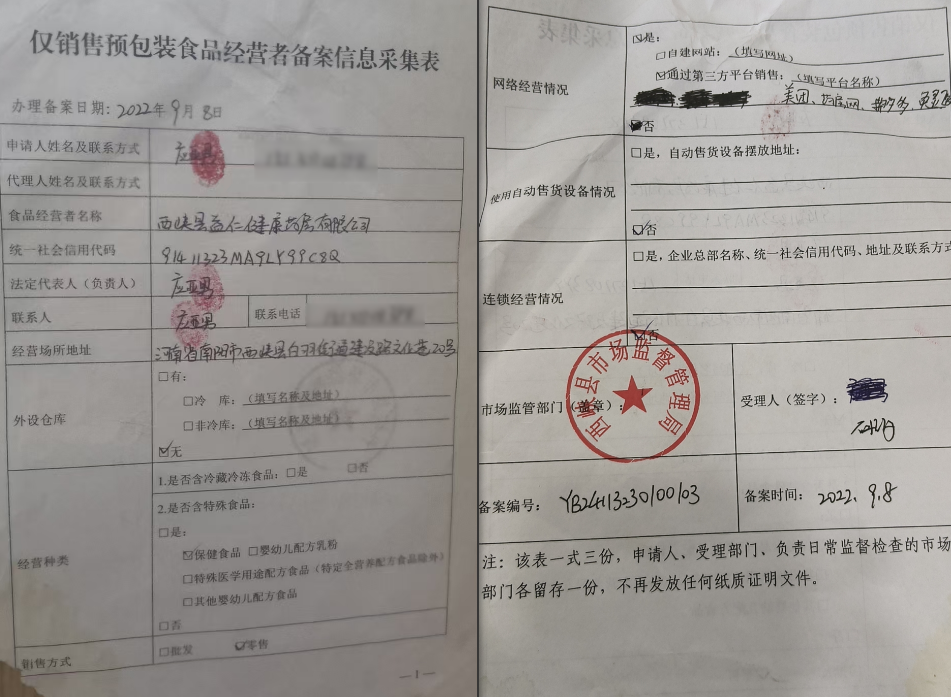 仅销售预包装食品经营者备案信息采集表
办理备案日期：2022年9月8日
申请人姓名及联系方式 应亚男
代理人姓名及联系方式
食品经营者名称 西峡县益仁健康药房有限公司
统一社会信用代码 91411323MA9LY99C8Q
法定代表人（负责人） 应亚男
联系人 应亚男 联系电话
经营场所地址 河南省南阳市西峡县白羽街道建设路文化巷20号
外设仓库
□有：
□冷 库：（填写名称及地址）
□非冷库：（填写名称及地址）
☑无
经营种类
1.是否含冷藏冷冻食品：□是 □否
2.是否含特殊食品：
□是：
☑保健食品 □婴幼儿配方乳粉
□特殊医学用途配方食品（特定全营养配方食品除外）
□其他婴幼儿配方食品
□否
销售方式 □批发 ☑零售
—1—
网络经营情况
☑是：
□自建网站：（填写网址）
☑通过第三方平台销售：（填写平台名称）
美团、药房网、拼多多、
☑否
使用自动售货设备情况
□是，自动售货设备摆放地址：
☑否
连锁经营情况
□是，企业总部名称、统一社会信用代码、地址及联系方式
☑否
市场监管部门（盖章）：
西峡县市场监督管理局
受理人（签字）：
备案编号： YB24113230100103
备案时间： 2022.9.8
注：该表一式三份，申请人、受理部门、负责日常监督检查的市场
部门各留存一份，不再发放任何纸质证明文件。